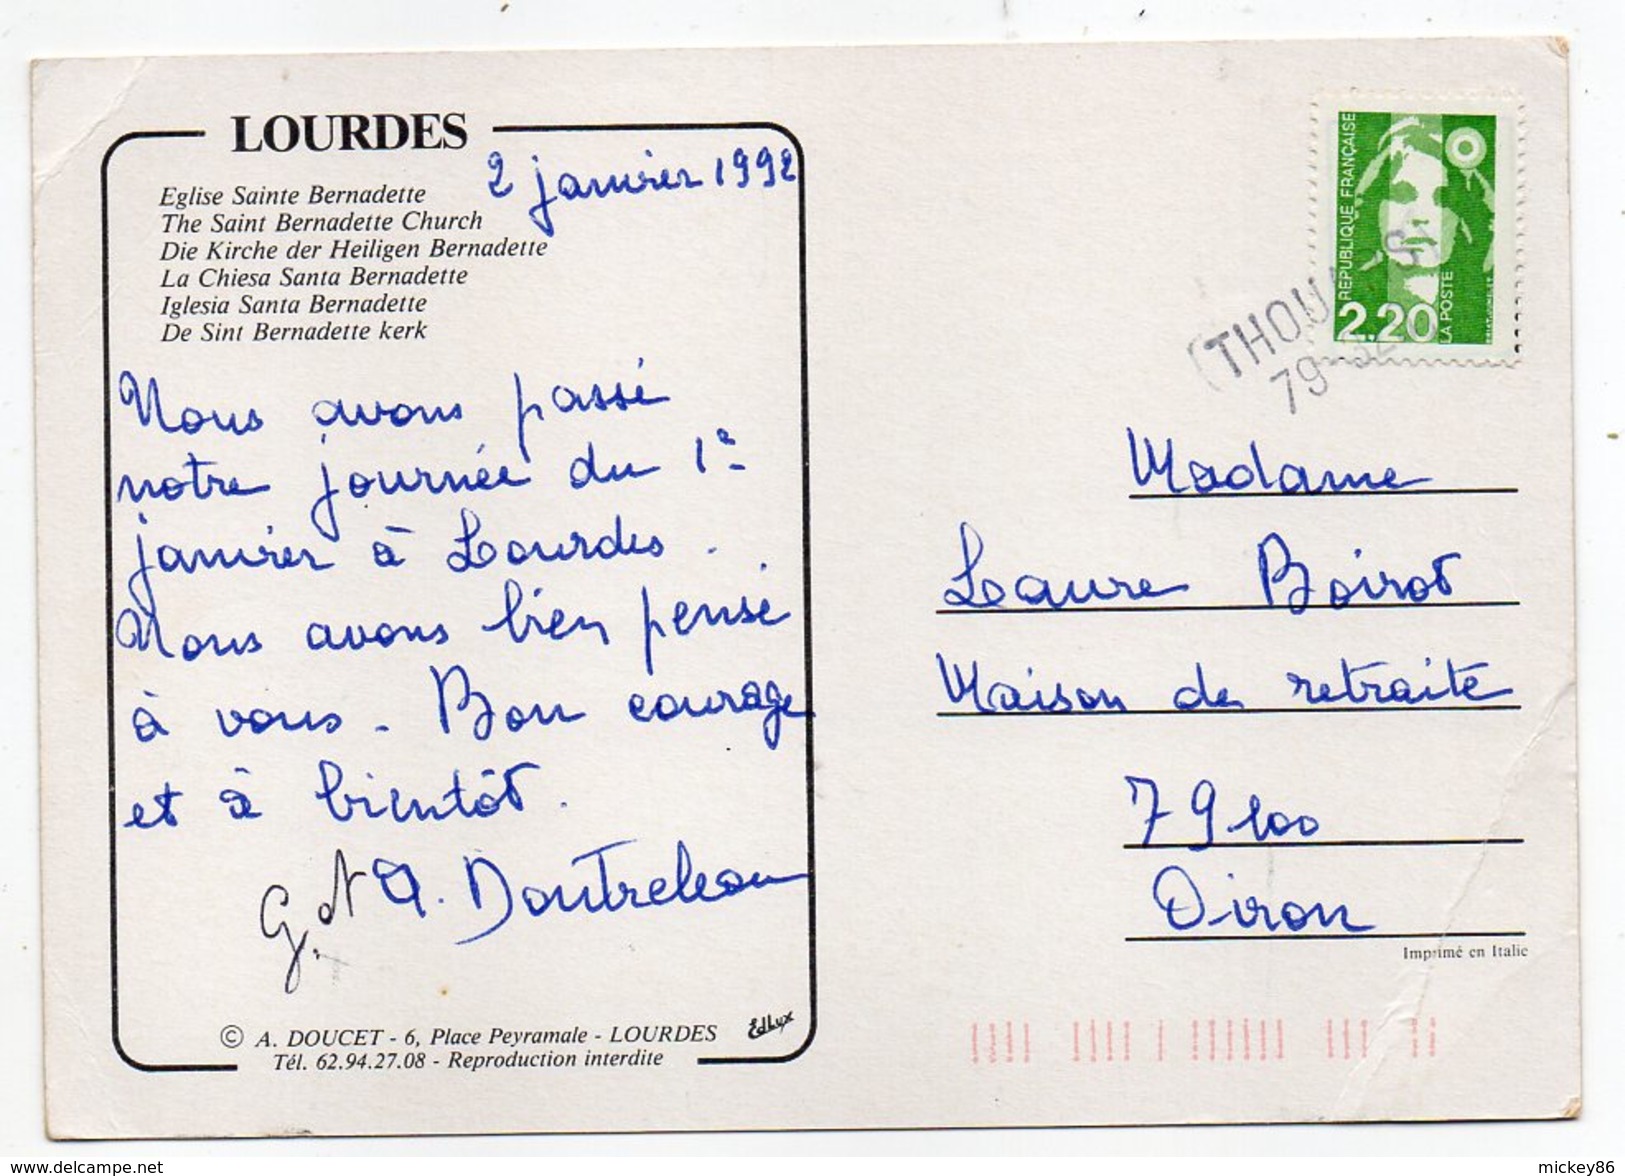 LOURDES
2 janvier 1992
Eglise Sainte Bernadette
The Saint Bernadette Church
Die Kirche der Heiligen Bernadette
La Chiesa Santa Bernadette
Iglesia Santa Bernadette
De Sint Bernadette kerk
Nous avons passé
notre journée du 1er
janvier à Lourdes.
Nous avons bien pensé
à vous. Bon courage
et à bientôt.
G. et A. Doutreleau
© A. DOUCET - 6, Place Peyramale - LOURDES
Tél. 62.94.27.08 - Reproduction interdite
EdLux
REPUBLIQUE FRANÇAISE
2.20
LA POSTE
79
Madame
Laure Boirot
Maison de retraite
79100
Oiron
Imprimé en Italie
www.delcampe.net
mickey86